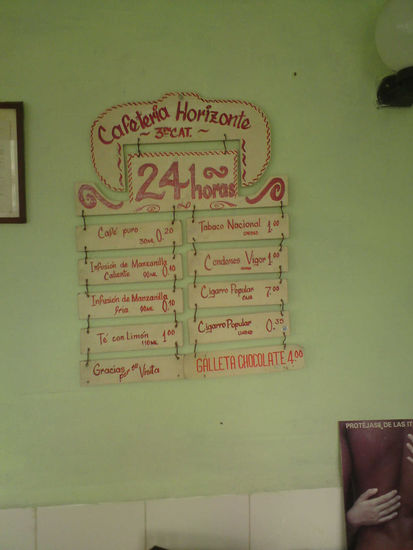 Cafeteria Horizonte
~ 3ra CAT. ~
24 horas
Café puro 0.20
30 ML
Infusión de Manzanilla
Caliente 90 ML 0.10
Infusión de Manzanilla
fria 90 ML 0.10
Té con Limón 1.00
110 ML
Gracias
por su Visita
Tabaco Nacional 1.00
UNIDAD
Condones Vigor 1.00
Cigarro Popular 7.00
CAJA
Cigarro Popular 0.35
UNIDAD
GALLETA CHOCOLATE 4.00
PROTÉJASE DE LAS IT